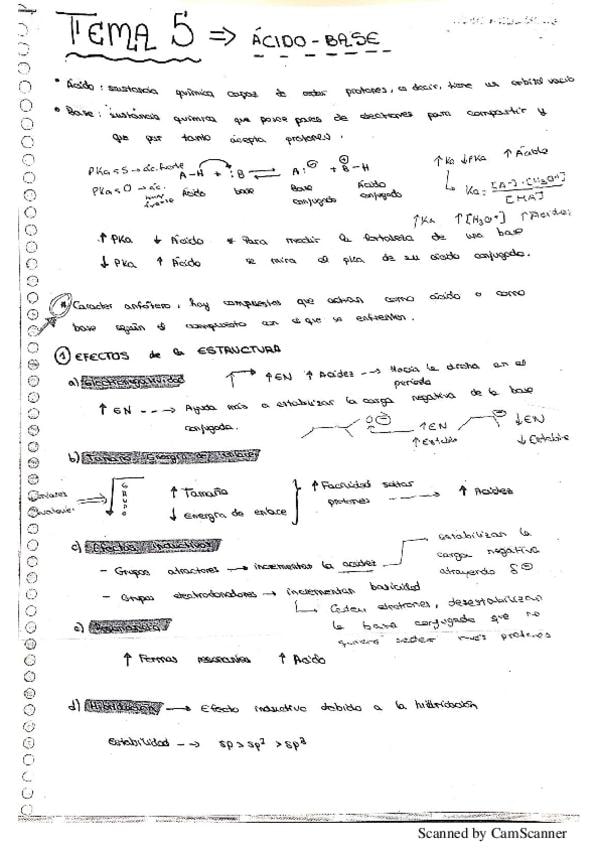 TEMA 5 ⇒ ÁCIDO-BASE
• Ácido: sustancia química capaz de ceder protones, es decir, tiene un orbital vacío
• Base: sustancia química que posee pares de electrones para compartir y
que por tanto acepta protones.
PKa<5 → ác. fuerte A-H + :B ⇌ A:⊖ + ⊕B-H
PKa<0 → ác. muy fuerte
Ácido base Base conjugada Ácido conjugado
↑Ka ↓PKa ↑Ácido
Ka = [A-]·[H3O+] / [HA]
↑Ka ↑[H3O+] ↑Acidez
↑PKa ↓Ácido * Para medir la fortaleza de una base
↓PKa ↑Ácido se mira el pka de su ácido conjugado.
* Caracter anfótero, hay compuestos que actúan como ácido o como
base según el compuesto con el que se enfrenten.
① EFECTOS de la ESTRUCTURA
a) Electronegatividad ↑EN ↑Acidez --→ Hacia la drcha en el
periodo
↑EN ---→ Ayuda más a estabilizar la carga negativa de la base
conjugada.
O⊖ ↑EN ↑Estable ⊖ ↓EN ↓Estable
b) Tamaño. Energía de enlace
GRUPO
↑Tamaño
↓Energía de enlace
↑Facilidad soltar
protones ----→ ↑Acidez
c) Efectos inductivos
- Grupos atractores → incrementan la acidez
estabilizan la
carga negativa
atrayendo δ⊖
- Grupos electrodonadores → incrementan basicidad
Ceden electrones, desestabilizan
la base conjugada que no
quiere ceder más protones
e) Resonancia
↑Formas resonantes ↑Ácido
d) Hibridación → Efecto inductivo debido a la hibridación
Estabilidad --→ sp > sp² > sp³
Scanned by CamScanner